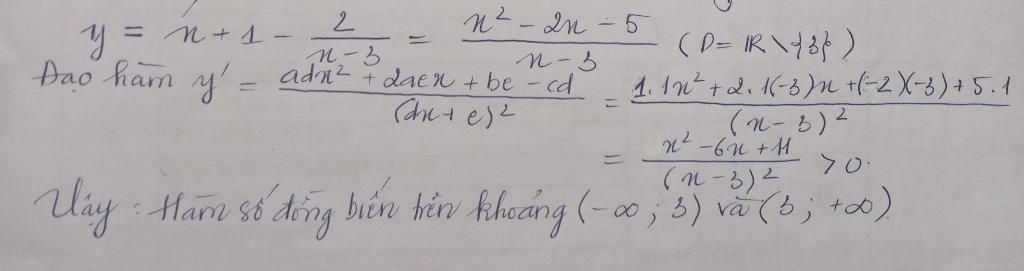 y = x + 1 - 2/(x - 3) = (x² - 2x - 5)/(x - 3) (D = ℝ \ {3})
Đạo hàm y' = (adx² + 2aex + be - cd)/(dx + e)² = (1.1x² + 2.1(-3)x + (-2)(-3) + 5.1)/(x - 3)²
= (x² - 6x + 11)/(x - 3)² > 0.
Vậy : Hàm số đồng biến trên khoảng (-∞ ; 3) và (3 ; +∞).